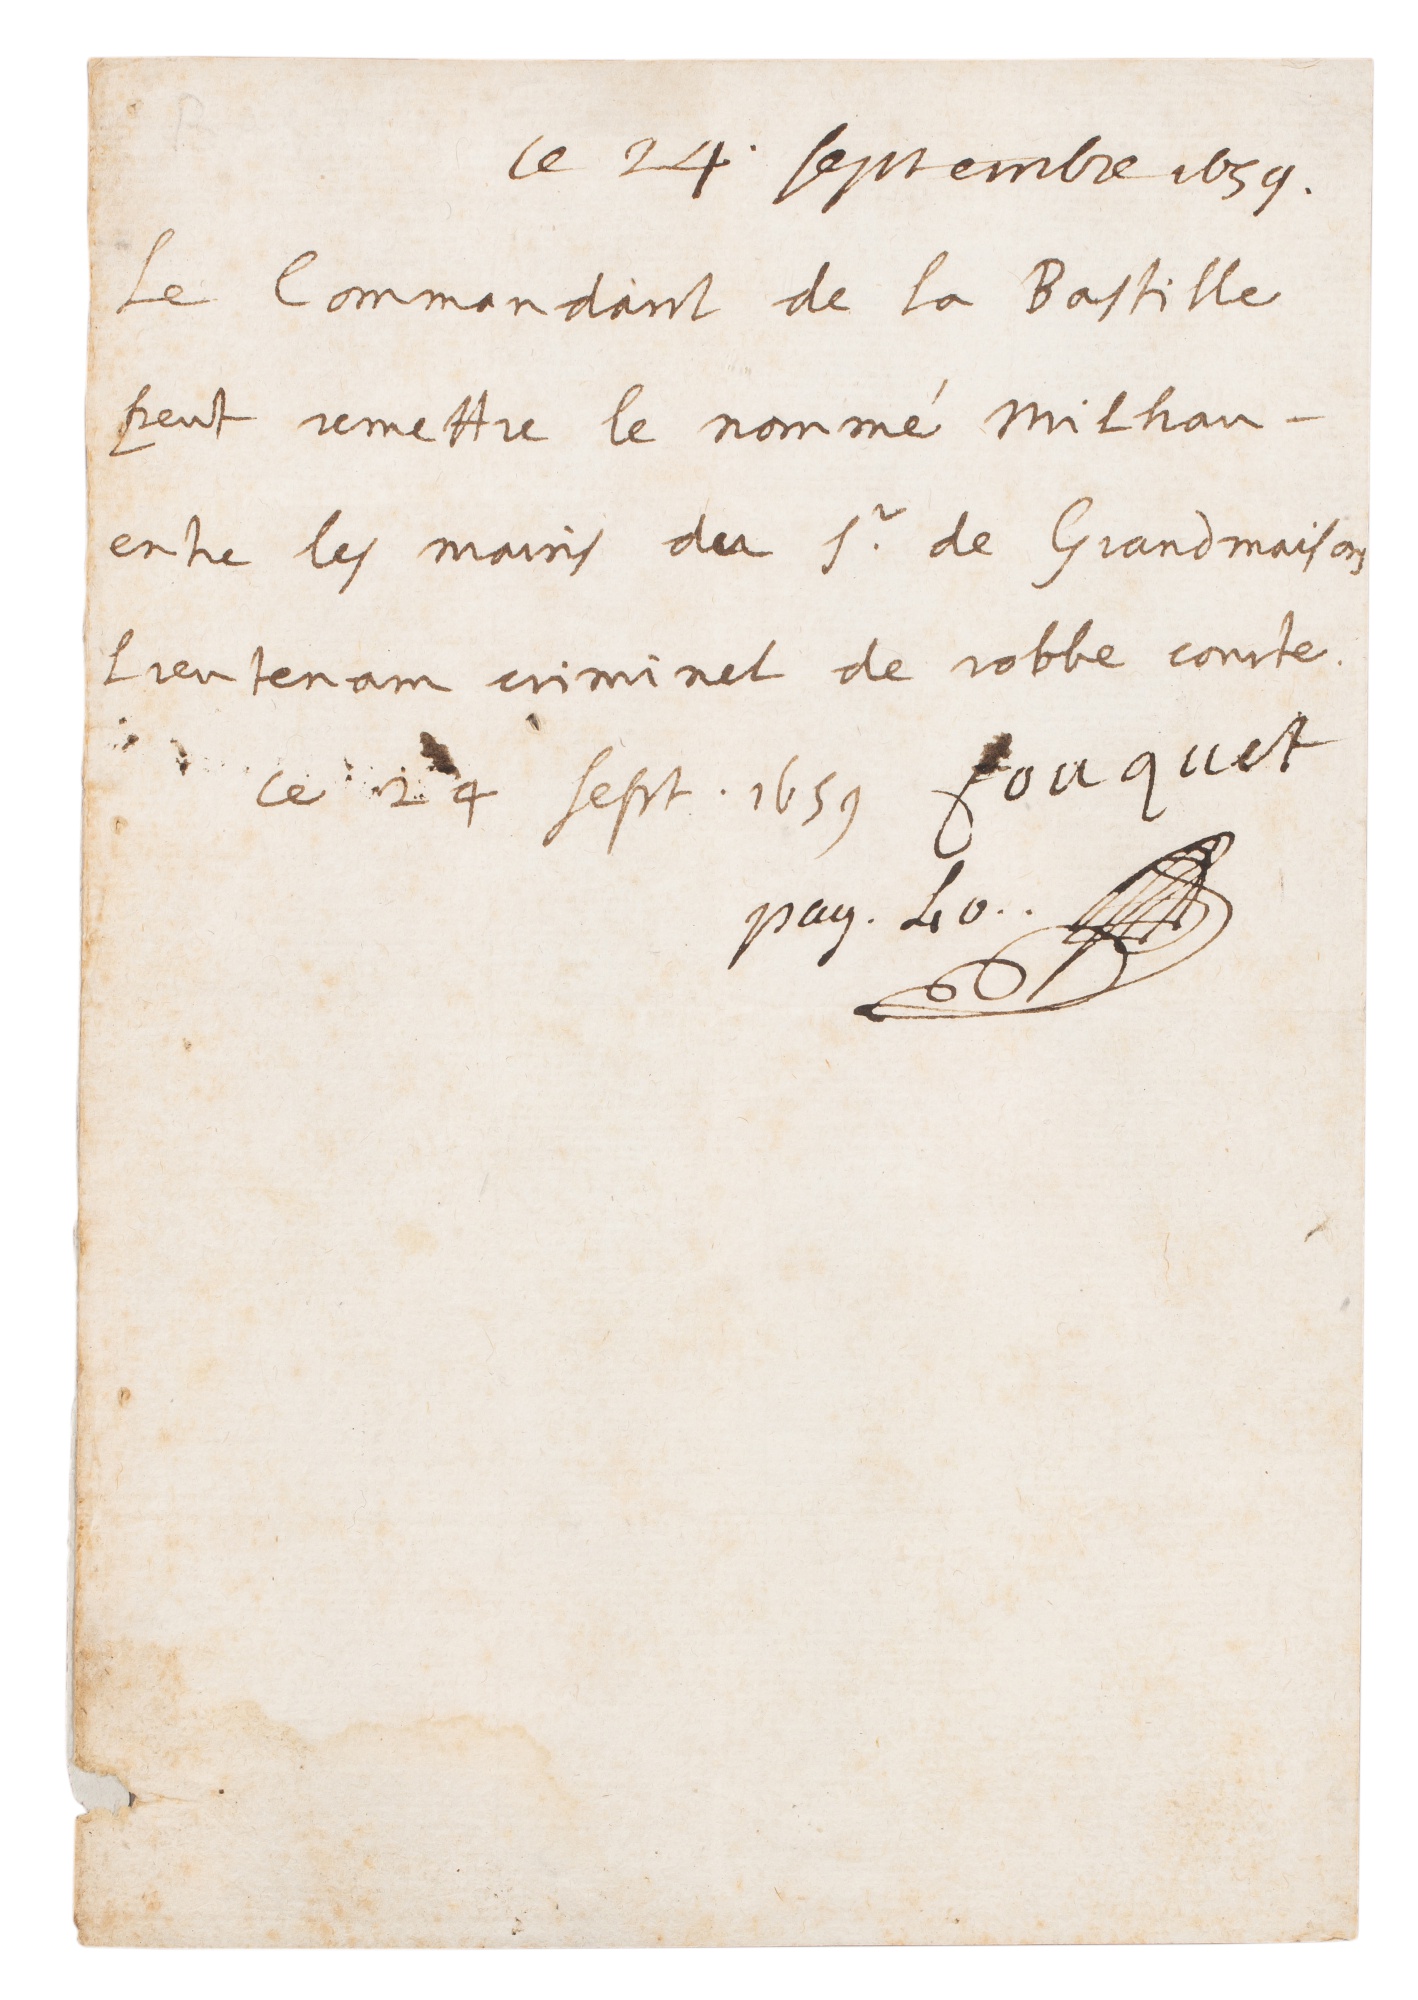 ce 24. septembre 1659.
Le Commandant de la Bastille
peut remettre le nommé Milhau -
entre les mains du Sr. de Grandmaison
Lieutenam criminel de robbe courte.
ce 24 sept. 1659 fouquet
pay. 40..